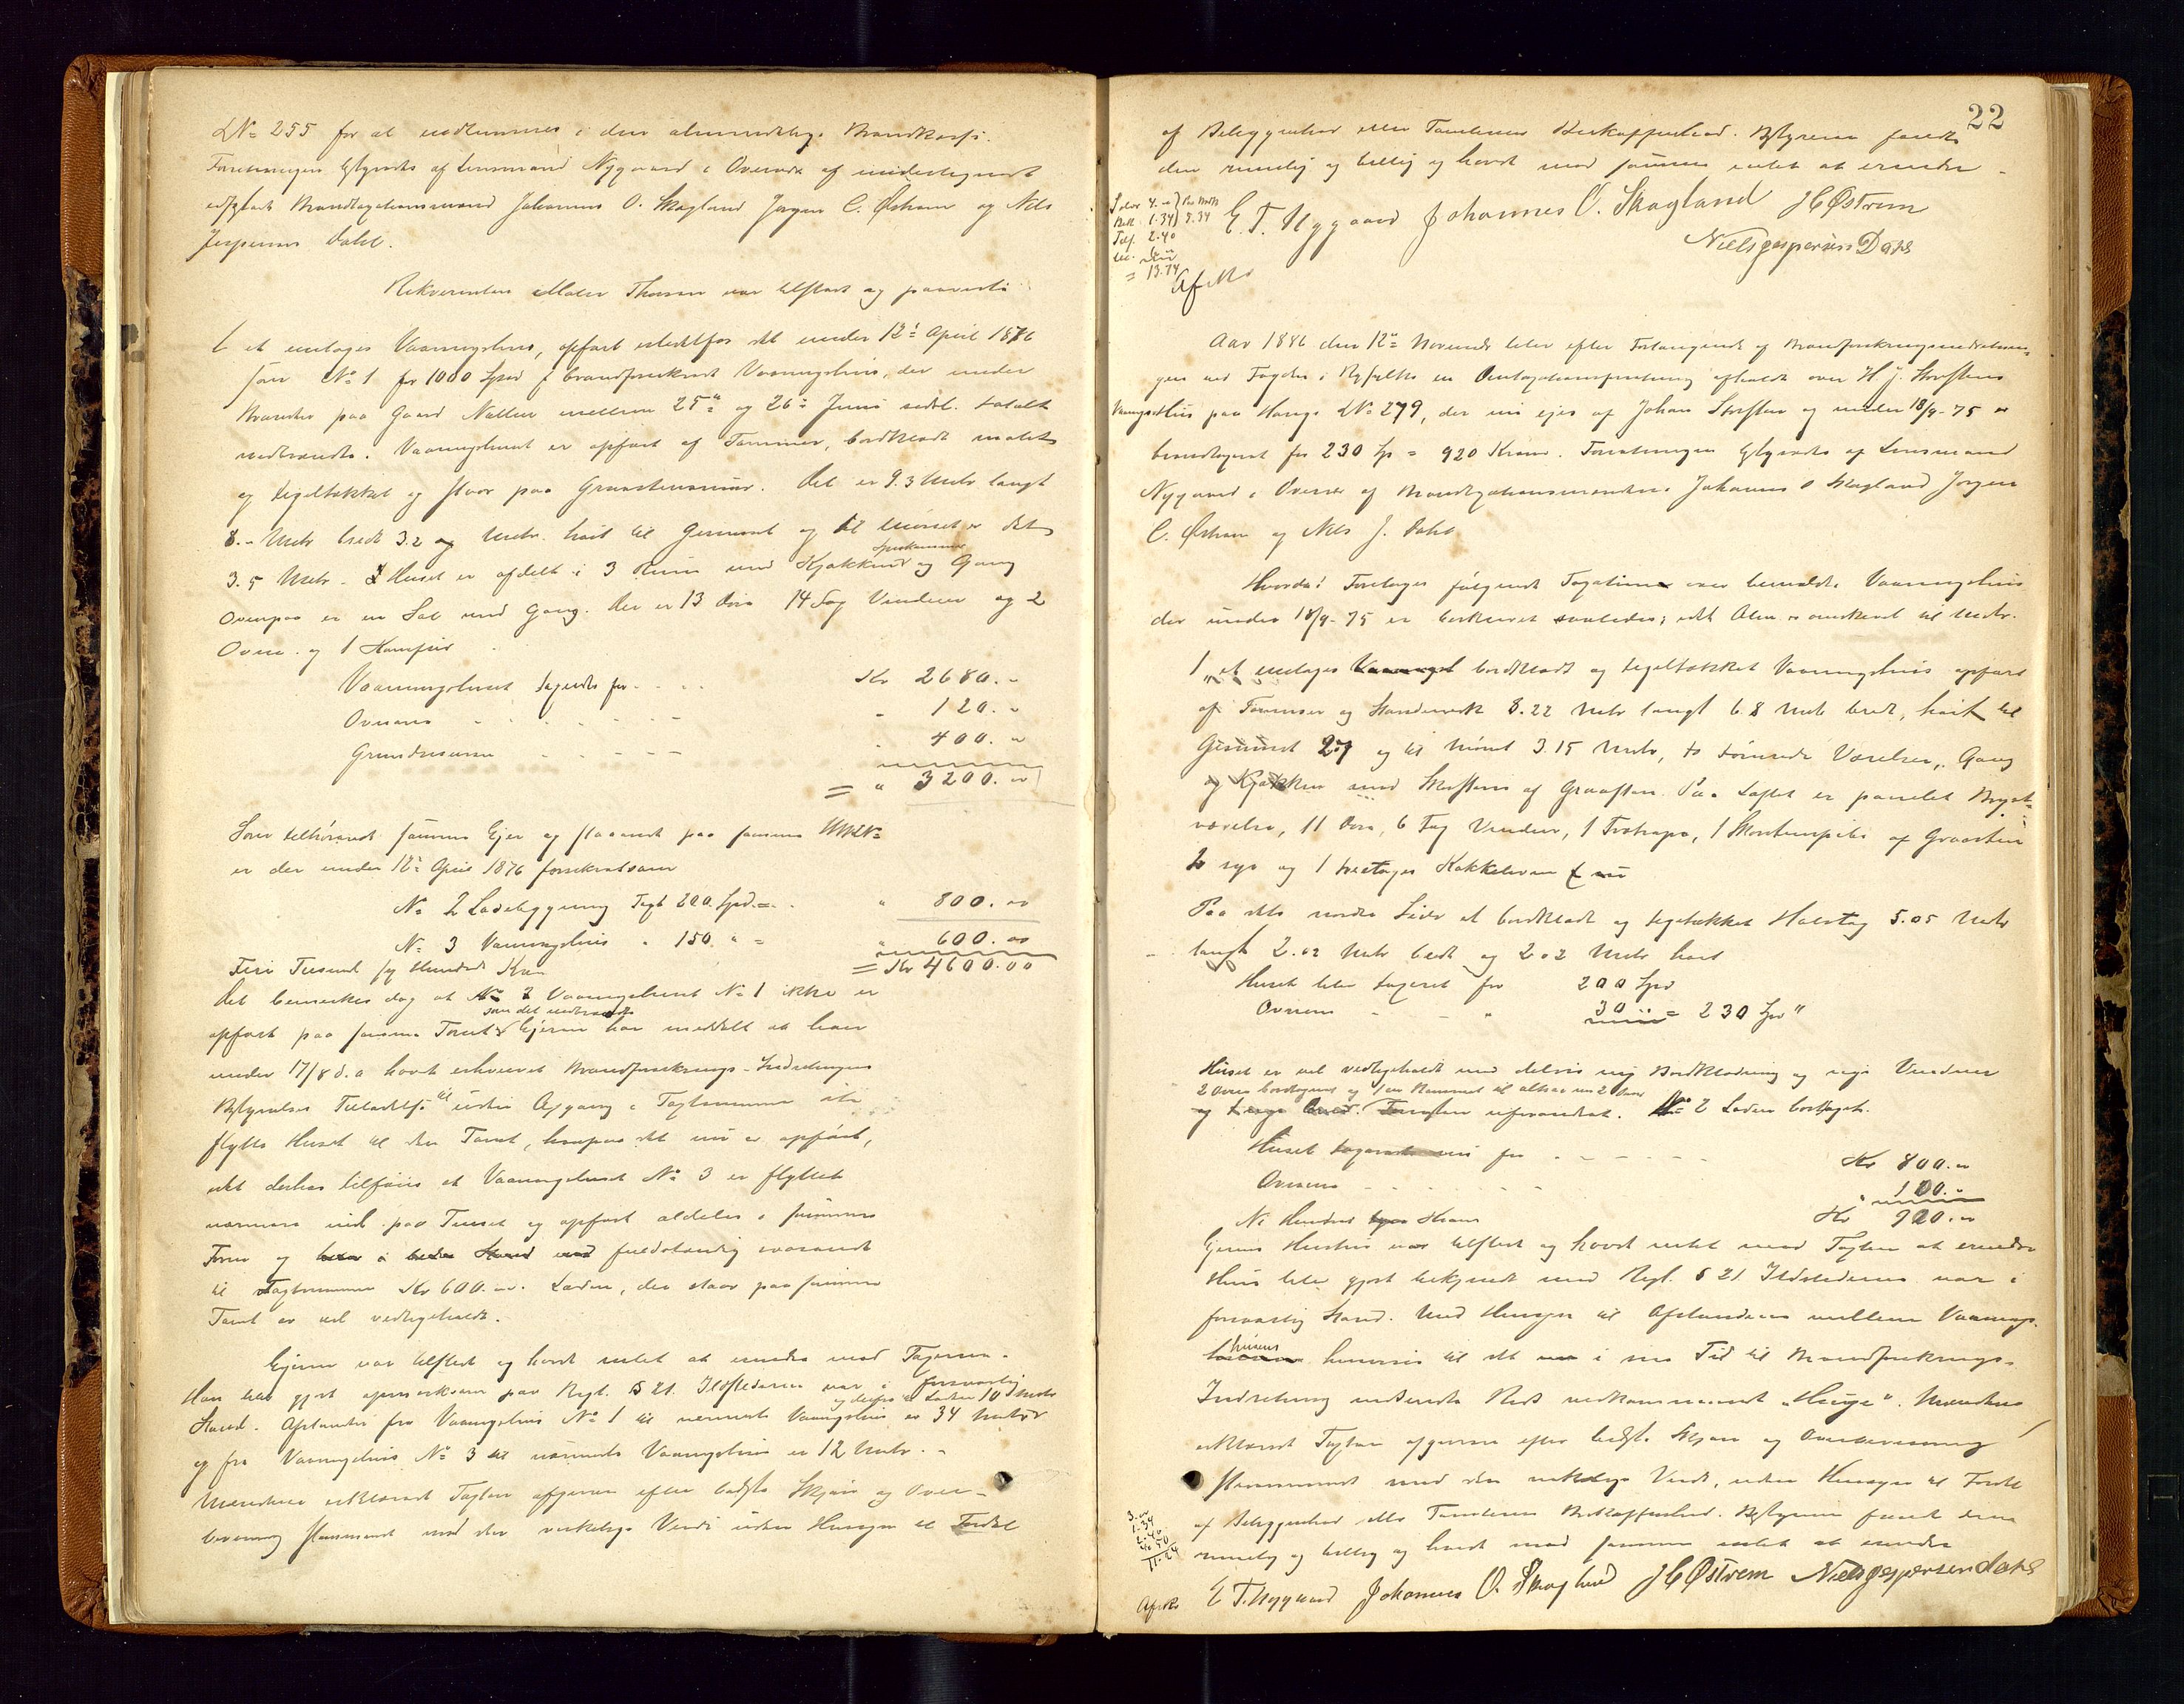 LNo 255 for at indlemmes i den almindelige Brandkasse.
Forretningen bestyredes af Lensmand Nygaard i Overvær af undertegnede
edfæstede Brandtaxationsmænd Johannes O. Skogland Jørgen C. Østrem og Nils
Jespersen Dahl.
Rekvirenten Thorsen var tilstede og paaviste
1 et enetages Vaaningshus, opført istedetfor det under 12te April 1876
som No 1 for 1000 Spd brandforsikrede Vaaningshus, der under
Branden paa Gaard natten mellem 25de og 26de Juni sidstl. totalt
nedbrændte. Vaaningshuset er opført af Tømmer, bordklædt malet
og tegltækket og staar paa Graastensmur. Det er 9.3 Meter langt
8.- Meter bredt 3.2 Meter høit til Gesimsen og til Mønet er det
3.5 Meter - Huset er afdelt i 3 Rum med Kjøkken Spiskammer og Gang
Ovenpaa er en Sal med Gang. Der er 13 Døre 14 Fag Vinduer og 2
Ovne og 1 Komfur
Vaaningshuset taxeredes for - - - Kr 2680.-
Ovnene - - - - - - " 120.-
Grundmuren - - - - - " 400. "
= " 3200. "
Som tilhørende samme Ejer og staaende paa samme
er der under 12te April 1876 forsikret som
No 2 Ladebygning Taxt 200 Spd. = " 800. 00
No 3 Vaaningshus " 150 " = " 600. 00
Fire Tusind sex Hundrede Kroner = Kr 4600.00
Det bemærkes dog at Vaaningshuset No 1 ikke er
opført paa samme Tomt som det nedbrændte Ejeren har meddelt at han
under 17/8 d.a havde erhvervet Brandforsikrings-Indretningens
Bestyrelses Tilladelse til uden Afgang i Taxtsummen at
flytte Huset til den Tomt, hvorpaa det nu er opført,
idet derhos tilføies at Vaaningshuset No 3 er flyttet
nærmere ind paa Tunet og opført aldeles i samme
Form og fuldstændig svarende
til Taxtsummen Kr 600.00. Laden, der staar paa samme
Tomt er vel vedligeholdt.
Ejeren var tilstede og havde intet at erindre mod Taxterne.
Han blev gjort opmærksom paa Regl. § 21. Ildstederne var i forsvarlig
Stand. Afstanden fra Vaaningshus No 1 til nærmeste Vaaningshus er 34 Meter og derfra til Laden 10 Meter
og fra Vaaningshus No 3 til nærmeste Vaaningshus er 12 Meter. -
Mændene erklærede Taxten afgiven efter bedste Skjøn og Over-
bevisning stemmende med den virkelige Værdi uden Hensyn til Fordel
22
af Beliggenhed eller Tomternes Beskaffenhed. Bestyreren fandt
den rimelig og billig og havde mod samme intet at erindre -
E. T. Nygaard Johannes O. Skagland J C Østrem
Niels Jespersen Dahl
1.34
2.40
= 13.74
Aar 1886 den 12te November blev efter Forlangende af Brandforsikringsindretnin-
gen ved Fogden i Ryfylke en Omtaxationsforretning afholdt over H J. Storstens
Vaaningshus paa Hauge LNo 279, der nu ejes af Johan Storsten og under 18/9-75 er
brandtaxeret for 230 Sp = 920 Kroner. Forretningen bestyredes af Lensmand
Nygaard i Overvær af Brandtaxationsmændene Johannes O Skogland Jørgen
C. Østrem og Nils J. Dahl
Hvorda! Foretoges følgende Taxation over bemeldte Vaaningshus
der under 18/9-75 er beskrevet saaledes; idet Alen er omskrevet til Meter.
1 " et enetages Vaaningsh bordklædt og tegltækket Vaaningshus opført
af Tømmer og Standerværk 8.22 Meter langt 6.8 Meter bredt, høit til
Gesimset 2.7 og til Mønet 3.15 Meter, to tømrede Værelser, Gang
og Kjøkken med Skorsten af Graasten. Paa Loftet er panelet Bryst-
værelse, 11 Døre, 6 Fag Vinduer, 1 Trætrappe, 1 Skorstenspibe af Graasten
2 nye og 1 treetages Kakkelovn
Paa dets nordre Side et bordklædt og tegltækket Halvtag 5.05 Meter
langt 2.02 Meter bredt og 2.02 Meter høit
Huset blev taxeret for 200 Spd
Ovnene - - " 30 " = 230 Spd "
Huset er vel vedligeholdt med delvis ny Bordklædning og nye Vinduer
2 Ovne borttagne og een kommet til altsaa nu 2 Ovne
Forøvrigt uforandret. No 2 Laden borttaget.
Huset taxeredes nu for - - - - - Kr 800. "
Ovnene - - - - - " 100. "
Ni Hundrede Kroner Kr 900. "
Ejerens Hustru var tilstede og havde intet mod Taxten at erindre
Hun blev gjort bekjendt med Regl. § 21. Ildstederne var i
forsvarlig Stand. Med Hensyn til Afstanden mellem Vaanings-
husene henvises til det i sin Tid til Brandforsikrings-
Indretning indsendte Rids vedkommende "Hauge". Mændene
erklærede Taxten afgiven efter bedste Skjøn og Overbevisning
stemmende med den virkelige Værdi, uden Hensyn til Fordel
af Beliggenhed eller Tomternes Beskaffenhed. Bestyreren fandt den
rimelig og billig og havde mod samme intet at erindre
E T. Nygaard Johannes O. Skagland J C Østrem Niels Jespersen Dahl